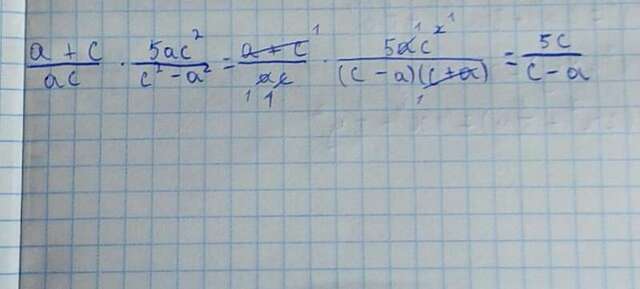 a + c / ac · 5ac² / c² - a² = a + c 1 / ac 1 1 · 5a¹c²¹ / (c - a)(c + a) 1 = 5c / c - a